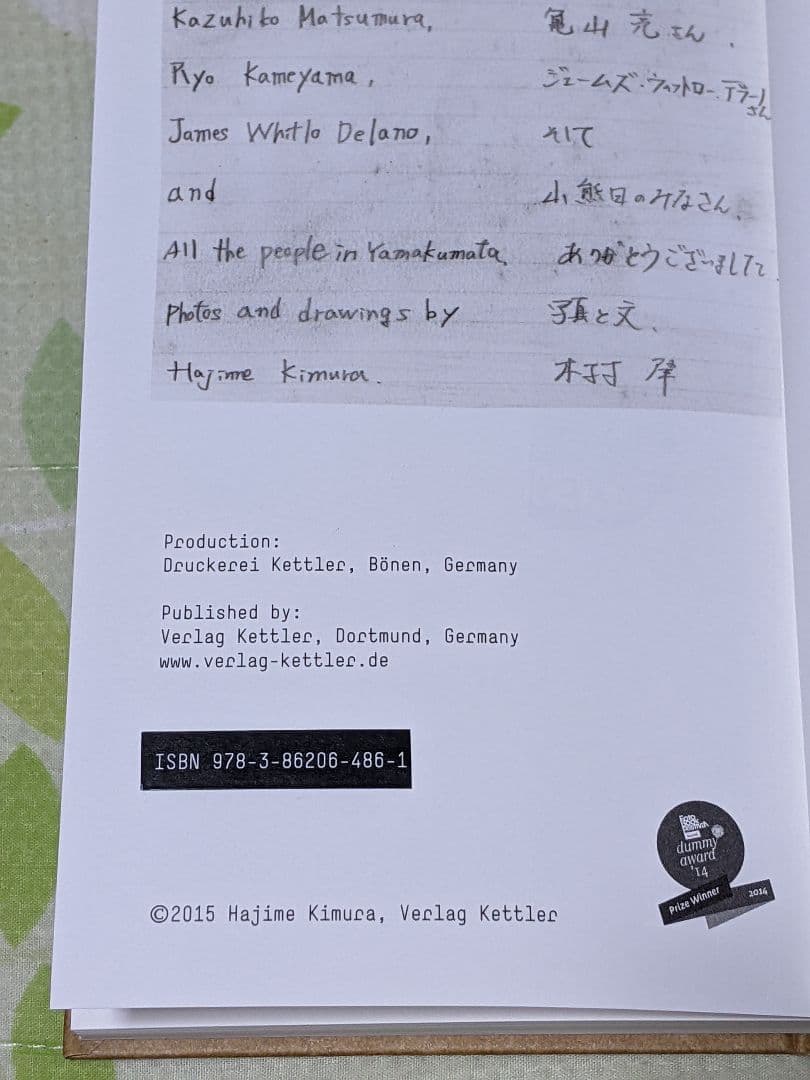 Kazuhiko Matsumura,
Ryo Kameyama,
James Whitlo Delano,
and
All the people in Yamakumata.
Photos and drawings by
Hajime Kimura.
亀山 亮さん、
ジェームズ・ウィットロー・デラーノ
さん
そして
山熊田のみなさん、
ありがとうございました
写真と文、
木村 肇
Production:
Druckerei Kettler, Bönen, Germany
Published by:
Verlag Kettler, Dortmund, Germany
www.verlag-kettler.de
ISBN 978-3-86206-486-1
©2015 Hajime Kimura, Verlag Kettler
Foto
Book
Festival
dummy
award
'14
Prize Winner
2014